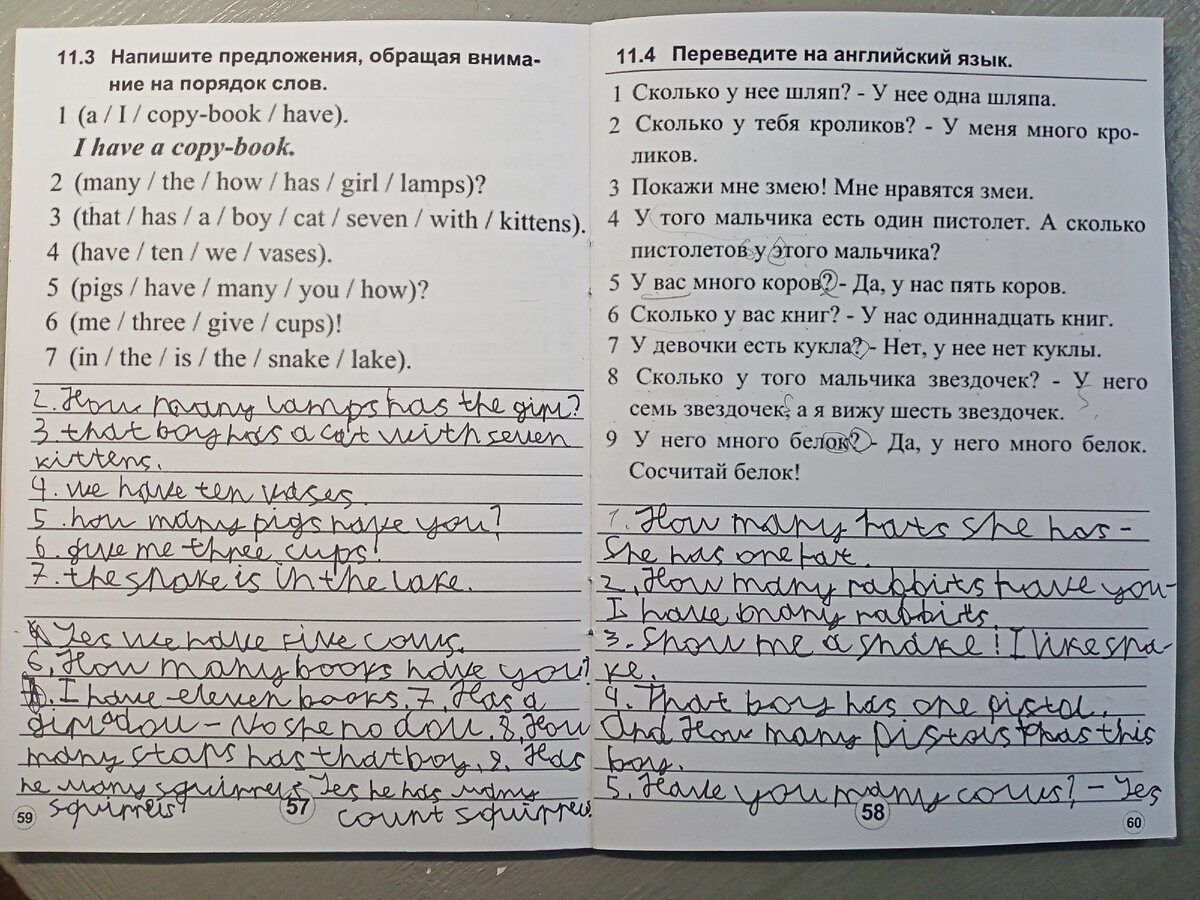 11.3 Напишите предложения, обращая внима-
ние на порядок слов.
1 (a / I / copy-book / have).
I have a copy-book.
2 (many / the / how / has / girl / lamps)?
3 (that / has / a / boy / cat / seven / with / kittens).
4 (have / ten / we / vases).
5 (pigs / have / many / you / how)?
6 (me / three / give / cups)!
7 (in / the / is / the / snake / lake).
2. How many lamps has the girl?
3 that boy has a cat with seven
kittens.
4. we have ten vases.
5. how many pigs have you?
6. give me three cups!
7. the snake is in the lake.
Yes we have five cows.
6. How many books have you?
I have eleven books. 7. Has a
girl a doll - No she no doll. 8. How
many stars has that boy. 9. Has
he many squirrels Yes he has many
squirrels count squirrels.
59
57
11.4 Переведите на английский язык.
1 Сколько у нее шляп? - У нее одна шляпа.
2 Сколько у тебя кроликов? - У меня много кро-
ликов.
3 Покажи мне змею! Мне нравятся змеи.
4 У того мальчика есть один пистолет. А сколько
пистолетов у этого мальчика?
5 У вас много коров? - Да, у нас пять коров.
6 Сколько у вас книг? - У нас одиннадцать книг.
7 У девочки есть кукла? - Нет, у нее нет куклы.
8 Сколько у того мальчика звездочек? - У него
семь звездочек, а я вижу шесть звездочек.
9 У него много белок? - Да, у него много белок.
Сосчитай белок!
1. How many hats she has -
She has one hat.
2. How many rabbits have you -
I have many rabbits.
3. Show me a snake! I like sna-
ke.
4. That boy has one pistol.
And How many pistols has this
boy.
5. Have you many cows? - Yes
58
60